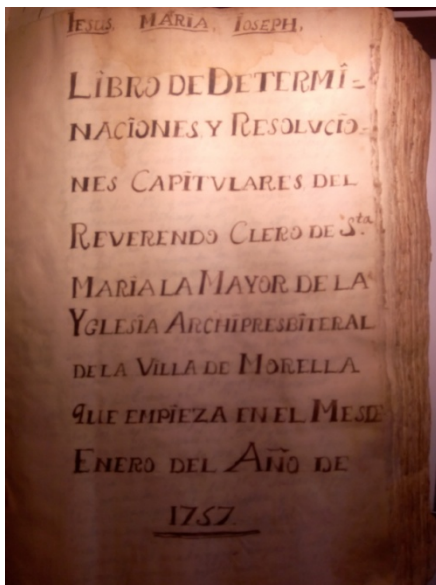 IESUS, MARIA, IOSEPH,
LIBRO DE DETERMI=
NACIONES, Y RESOLVCIO=
NES CAPITVLARES DEL
REVERENDO CLERO DE S.ta
MARIA LA MAYOR DE LA
YGLESIA ARCHIPRESBITERAL
DE LA VILLA DE MORELLA
QUE EMPIEZA EN EL MES DE
ENERO DEL AÑO DE
1757.